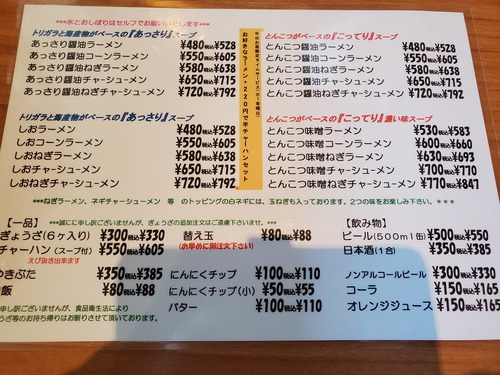 ***水とおしぼりはセルフでお願いいたします***
トリガラと海産物がベースの『あっさり』スープ
あっさり醤油ラーメン ¥480税込¥528
あっさり醤油コーンラーメン ¥550税込¥605
あっさり醤油ねぎラーメン ¥580税込¥638
あっさり醤油チャーシューメン ¥650税込¥715
あっさり醤油ねぎチャーシューメン ¥720税込¥792
トリガラと海産物がベースの『あっさり』スープ
しおラーメン ¥480税込¥528
しおコーンラーメン ¥550税込¥605
しおねぎラーメン ¥580税込¥638
しおチャーシューメン ¥650税込¥715
しおねぎチャーシューメン ¥720税込¥792
お好きなラーメン+220円で半チャーハンセット
とんこつがベースの『こってり』スープ
とんこつ醤油ラーメン ¥480税込¥528
とんこつ醤油コーンラーメン ¥550税込¥605
とんこつ醤油ねぎラーメン ¥580税込¥638
とんこつ醤油チャーシューメン ¥650税込¥715
とんこつ醤油ねぎチャーシューメン ¥720税込¥792
とんこつがベースの『こってり』濃い味スープ
とんこつ味噌ラーメン ¥530税込¥583
とんこつ味噌コーンラーメン ¥600税込¥660
とんこつ味噌ねぎラーメン ¥630税込¥693
とんこつ味噌チャーシューメン ¥700税込¥770
とんこつ味噌ねぎチャーシューメン ¥770税込¥847
***ねぎラーメン、ネギチャーシューメン 等 のトッピングの白ネギには、玉ねぎも入っております。2つの味をお楽しみ下さい。***
【一品】 ***誠にに申し訳ございませんが、ぎょうざの追加注文はご遠慮下さいませ。***
ぎょうざ(6ヶ入り) ¥300税込¥330
チャーハン(スープ付) ¥550税込¥605
えび抜き出来ます
やきぶた ¥350税込¥385
飯 ¥80税込¥88
申し訳ございませんが、食品衛生法により
うざ等のお持ち帰りはお断りさせて頂いております。
替え玉 ¥80税込¥88
(お早めに御注文下さい)
にんにくチップ ¥100税込¥110
にんにくチップ(小) ¥50税込¥55
バター ¥100税込¥110
【飲み物】
ビール(500m1缶) ¥500税込¥550
日本酒(1合) ¥350税込¥385
ノンアルコールビール ¥300税込¥330
コーラ ¥150税込¥165
オレンジジュース ¥150税込¥165